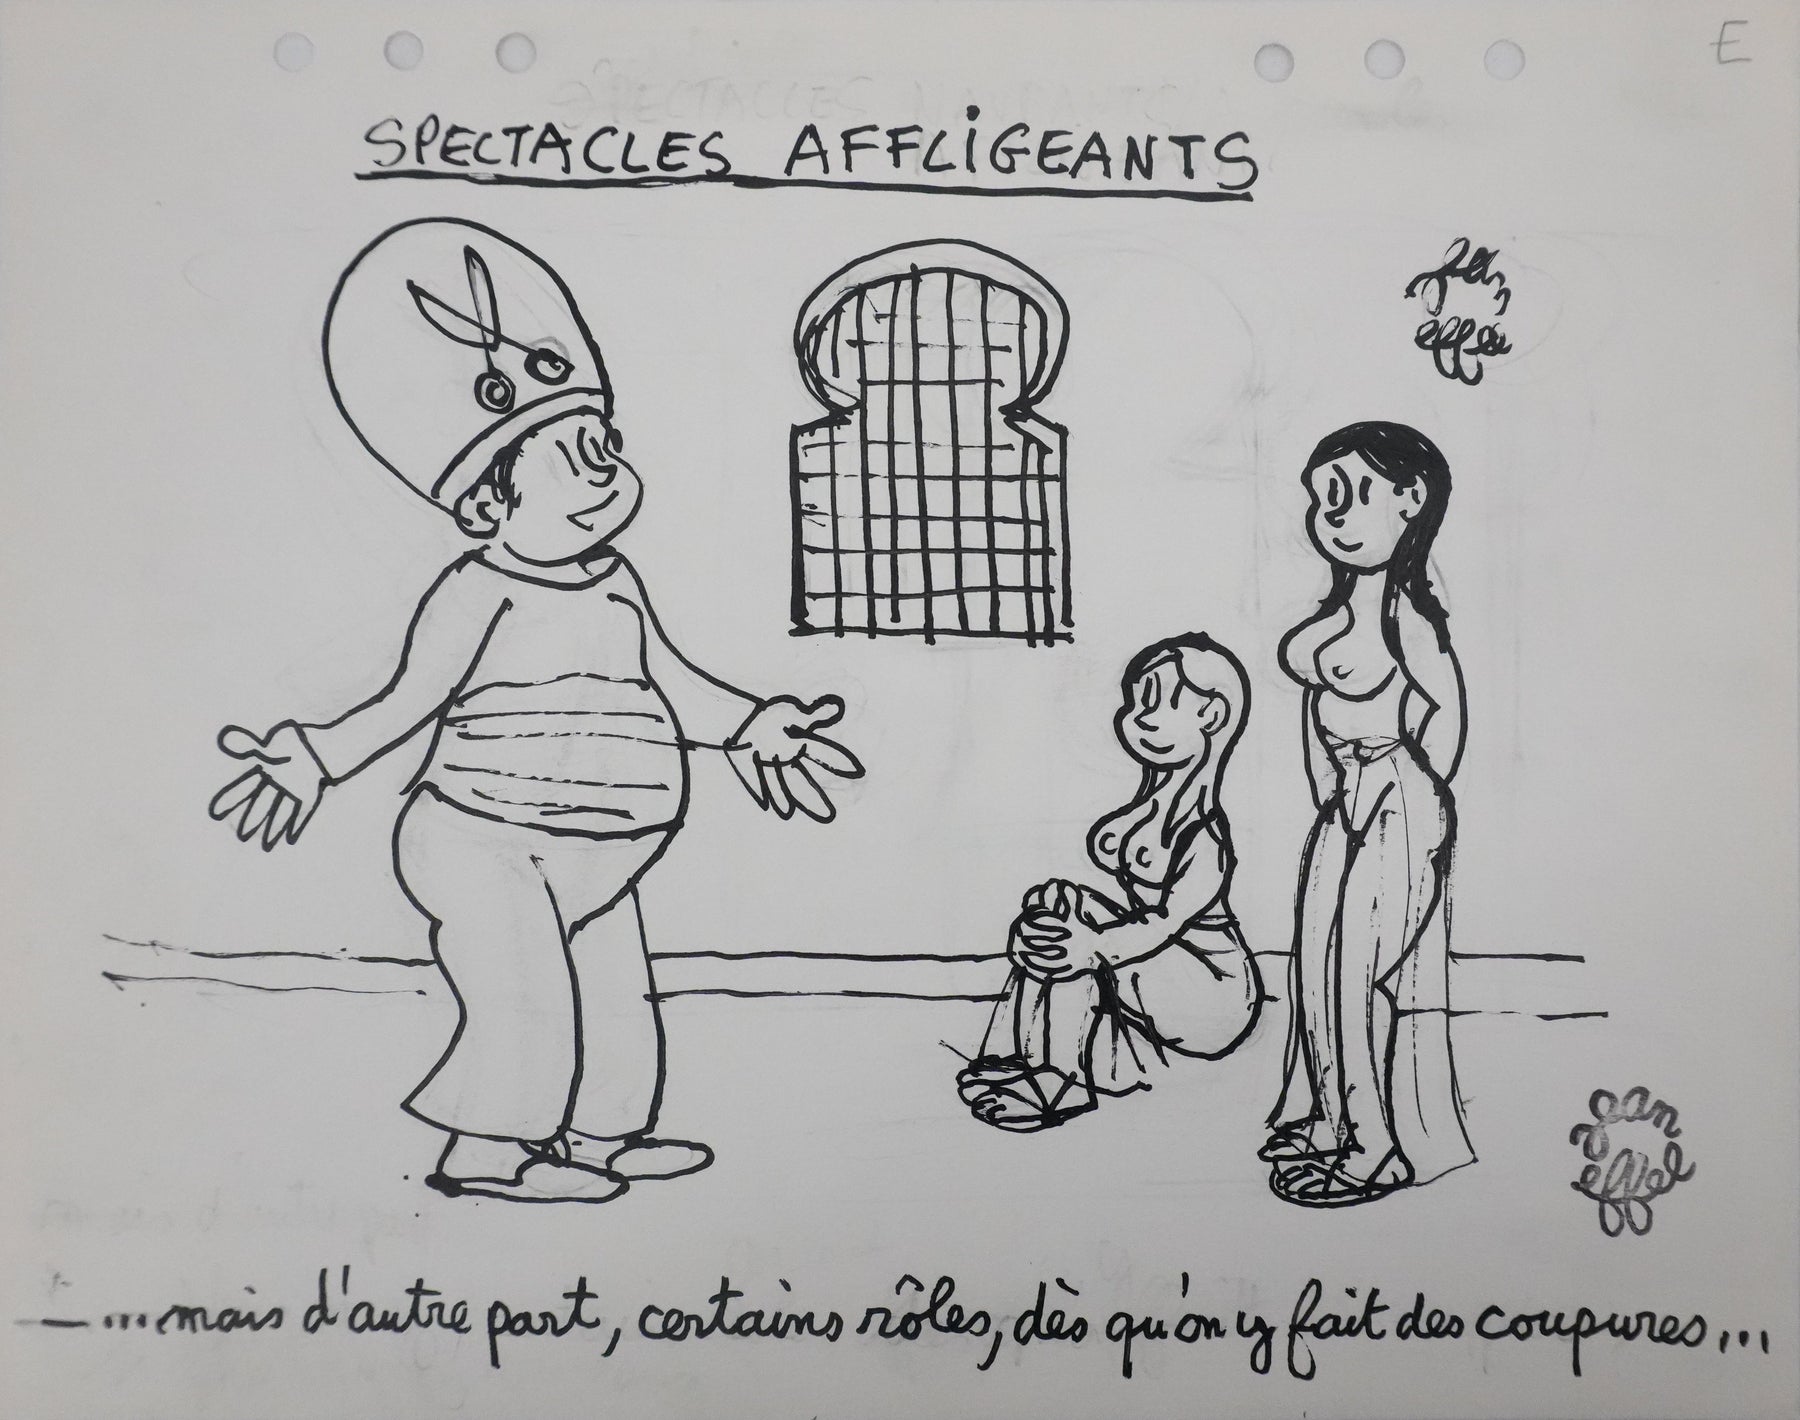 E
SPECTACLES AFFLIGEANTS
jean
effel
jean
effel
— ...mais d'autre part, certains rôles, dès qu'on y fait des coupures...